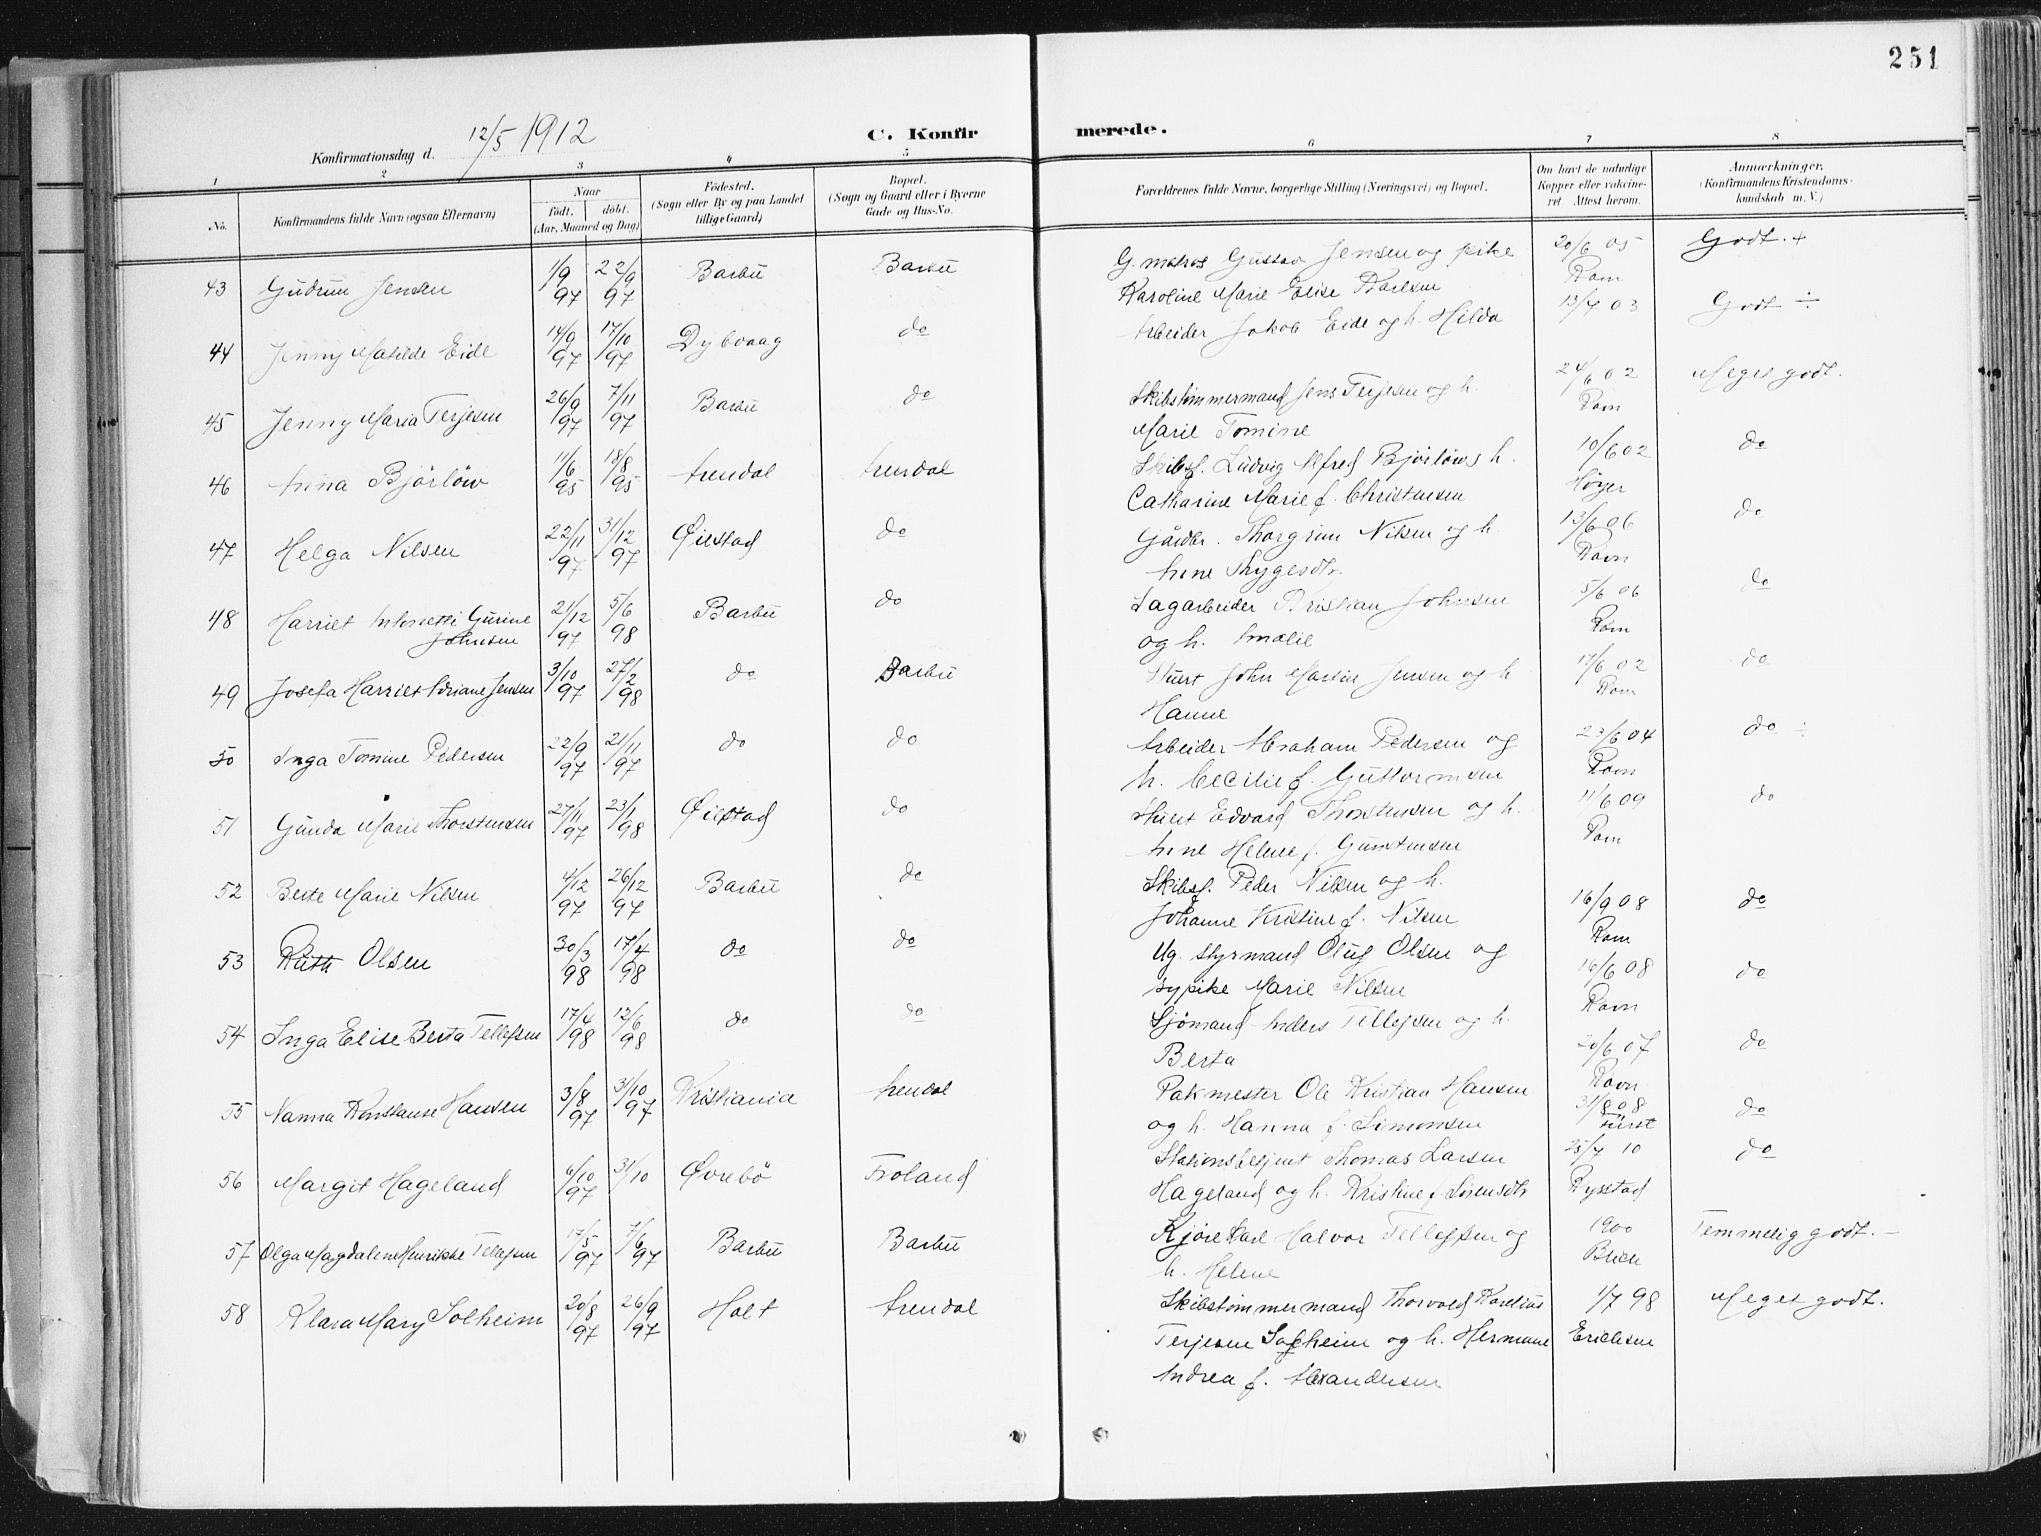 251
12/5 1912
C. Konfir merede.
Konfirmationsdag d.
1 2 3 4 5 6 7 8
No.
Konfirmandens fulde Navn (ogsaa Efternavn)
Naar
født. døbt.
(Aar, Maaned og Dag)
Födested.
(Sogn eller By og paa Landet
tillige Gaard)
Bopæl.
(Sogn og Gaard eller i Byerne
Gade og Hus-No.
Forældrenes fulde Navne, borgerlige Stilling (Næringsvei) og Bopæl.
Om havt de naturlige
Kopper eller vakcine-
ret. Attest herom.
Anmærkninger.
(Konfirmandens Kristendoms-
kundskab m. V.)
43 Gudrun Jensen 1/9 97 22/9 97 Barbu Barbu G. matros Gustav Jensen og pike 20/6 05 Godt. +
Karoline Marie Elise Karlsen Ravn
44 Jenny Matilde Eide 14/9 97 17/10 97 Dybvaag do Arbeider Jakob Eide og h. Hilda 13/7 03 Godt ÷
45 Jenny Maria Terjesen 26/9 97 7/11 97 Barbu do Skibstømmermand Jens Terjesen og h. 24/6 02 Meget godt.
Marie Tomine Ravn
46 Anna Bjørløw 11/6 95 18/8 95 Arendal Arendal Skibsf. Ludvig Alfred Bjørløws h. 10/6 02 do
Catharine Marie f. Christensen Høyer
47 Helga Nilsen 22/11 97 31/12 97 Øiestad do Gårdbr. Thorgrim Nilsen og h. 13/6 06 do
Anne Thygesdtr. Ravn
48 Harriet Antonette Gurine Johnsen 21/12 97 5/6 98 Barbu do Sagarbeider Kristian Johnsen 5/6 06 do
og h. Amalie Ravn
49 Josefa Harriet Adriane Jensen 3/10 97 27/2 98 do Barbu Stuert John Martin Jensen og h 17/6 02 do
Hanne Ravn
50 Inga Tomine Pedersen 22/9 97 21/11 97 do do Arbeider Abraham Pedersen og 23/6 04 do ÷
h. Cecilie f. Guttormsen Ravn
51 Gunda Marie Thorstensen 27/11 97 23/1 98 Øiestad do Stuert Edvard Thorstensen og h. 11/6 09 do
Anne Helene f. Gunstensen Ravn
52 Berte Marie Nilsen 4/12 97 26/12 97 Barbu do Skibsf. Peder Nilsen og h. 16/9 08 do
Johanne Kristine f. Nilsen Ravn
53 Ruth Olsen 30/3 98 17/4 98 do do Ug. styrmand Oluf Olsen og 16/6 08 do
sypike Marie Nilsen Ravn
54 Inga Elise Berta Tellefsen 17/4 98 12/6 98 do do Sjømand Anders Tellefsen og h. 20/6 07 do
Berta Ravn
55 Nanna Konstanse Hansen 3/8 97 31/10 97 Kristiania Arendal Pakmester Ole Kristian Hansen 31/8 08 do
og h. Hanna f. Simonsen Fürst
56 Margit Hageland 6/10 97 31/10 Øvrebö Froland Stationsbetjent Thomas Larsen 25/7 10 do
Hageland og h. Kristine f. Sørensdtr Rysstad
57 Olga Magdalene Henrikke Tellefsen 17/5 97 7/6 97 Barbu Barbu Kjørekarl Halvor Tellefsen og 1900 Temmelig godt. –
h. Helene
58 Klara Mary Solheim 20/8 97 26/9 97 Holt Arendal Skibstømmermand Thorvald Karelius 1/7 98 Meget godt.
Terjesen Solheim og h. Hermane Erichsen
Andrea f. Alexandersen